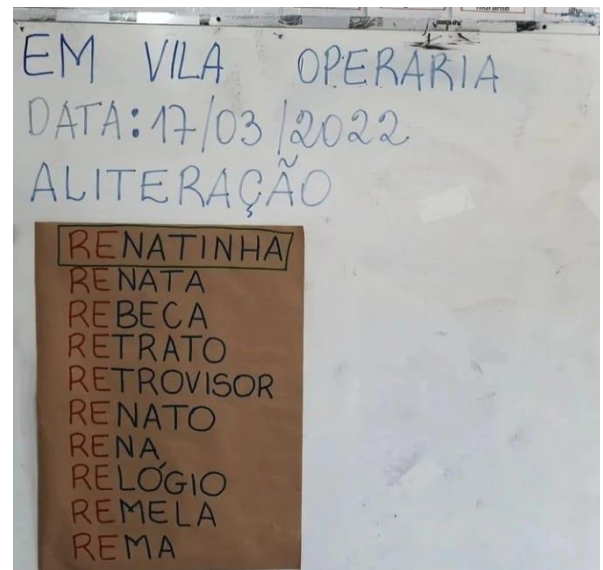 EM VILA OPERARIA
DATA: 17/03/2022
ALITERAÇÃO
RENATINHA
RENATA
REBECA
RETRATO
RETROVISOR
RENATO
RENA
RELÓGIO
REMELA
REMA